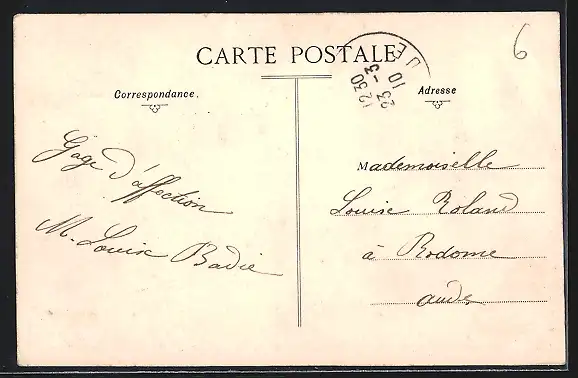 6
CARTE POSTALE
Correspondance.
Adresse
1230
23-3
10
UE
Gage d'affection
M. Louise Badie
Mademoiselle
Louise Roland
à Rodome
Aude